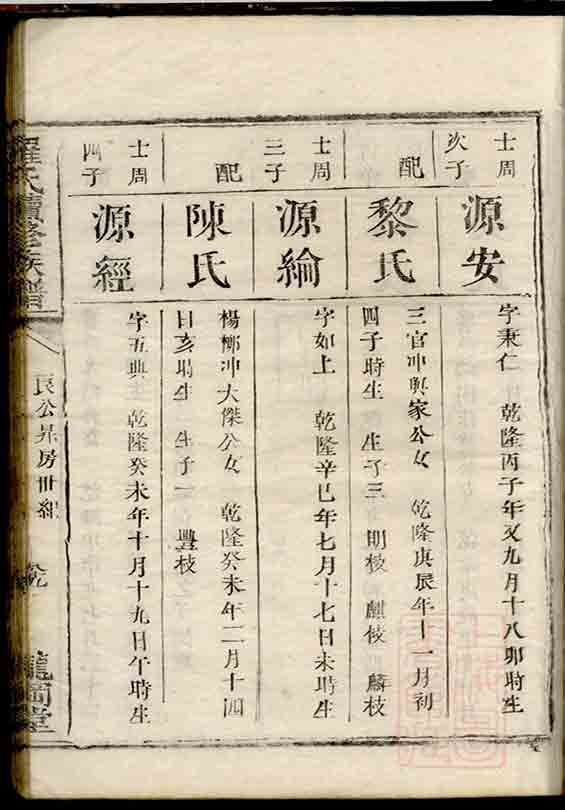 士周
次子
源安
字秉仁 乾隆丙子年又九月十八卯時生
配
黎氏
三官冲興家公女 乾隆庚辰年十一月初
四子時生 生子三 明枝 麒枝 麟枝
士周
三子
源綸
字如上 乾隆辛巳年七月十七日未時生
配
陳氏
楊梆冲大傑公女 乾隆癸未年二月十四
日亥時生 生子一 豐枝
士周
四子
源經
字五典 乾隆癸未年十月十九日午時生
羅氏續修族譜
良公昇房世紀